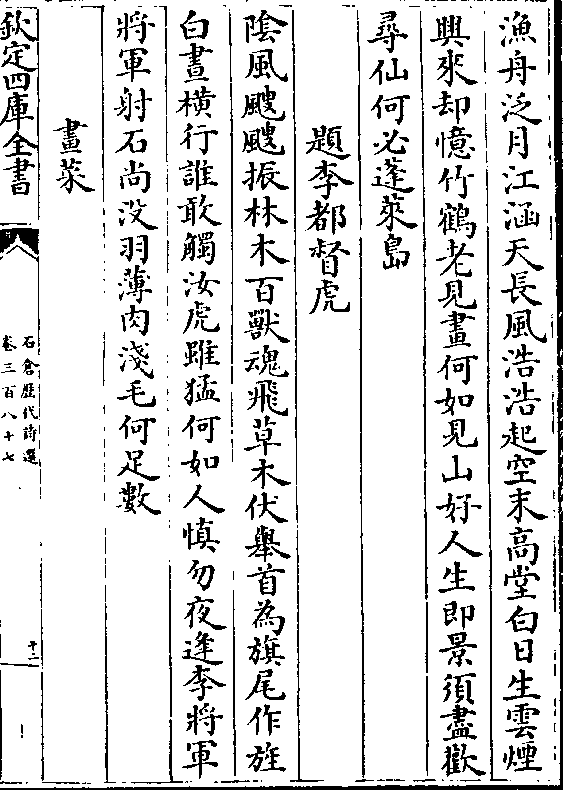 漁舟泛月江涵天長風浩浩起空末高堂白日生雲煙
興來却憶竹鶴老見畫何如見山好人生即景須盡歡
尋仙何必蓬萊島
題李都督虎
陰風颼颼振林木百獸魂飛草木伏舉首為旗尾作旌
白晝橫行誰敢觸汝虎雖猛何如人慎勿夜逢李將軍
將軍射石尚没羽薄肉淺毛何足數
畫菜
欽定四庫全書
石倉歷代詩選
卷三百八十七
十二